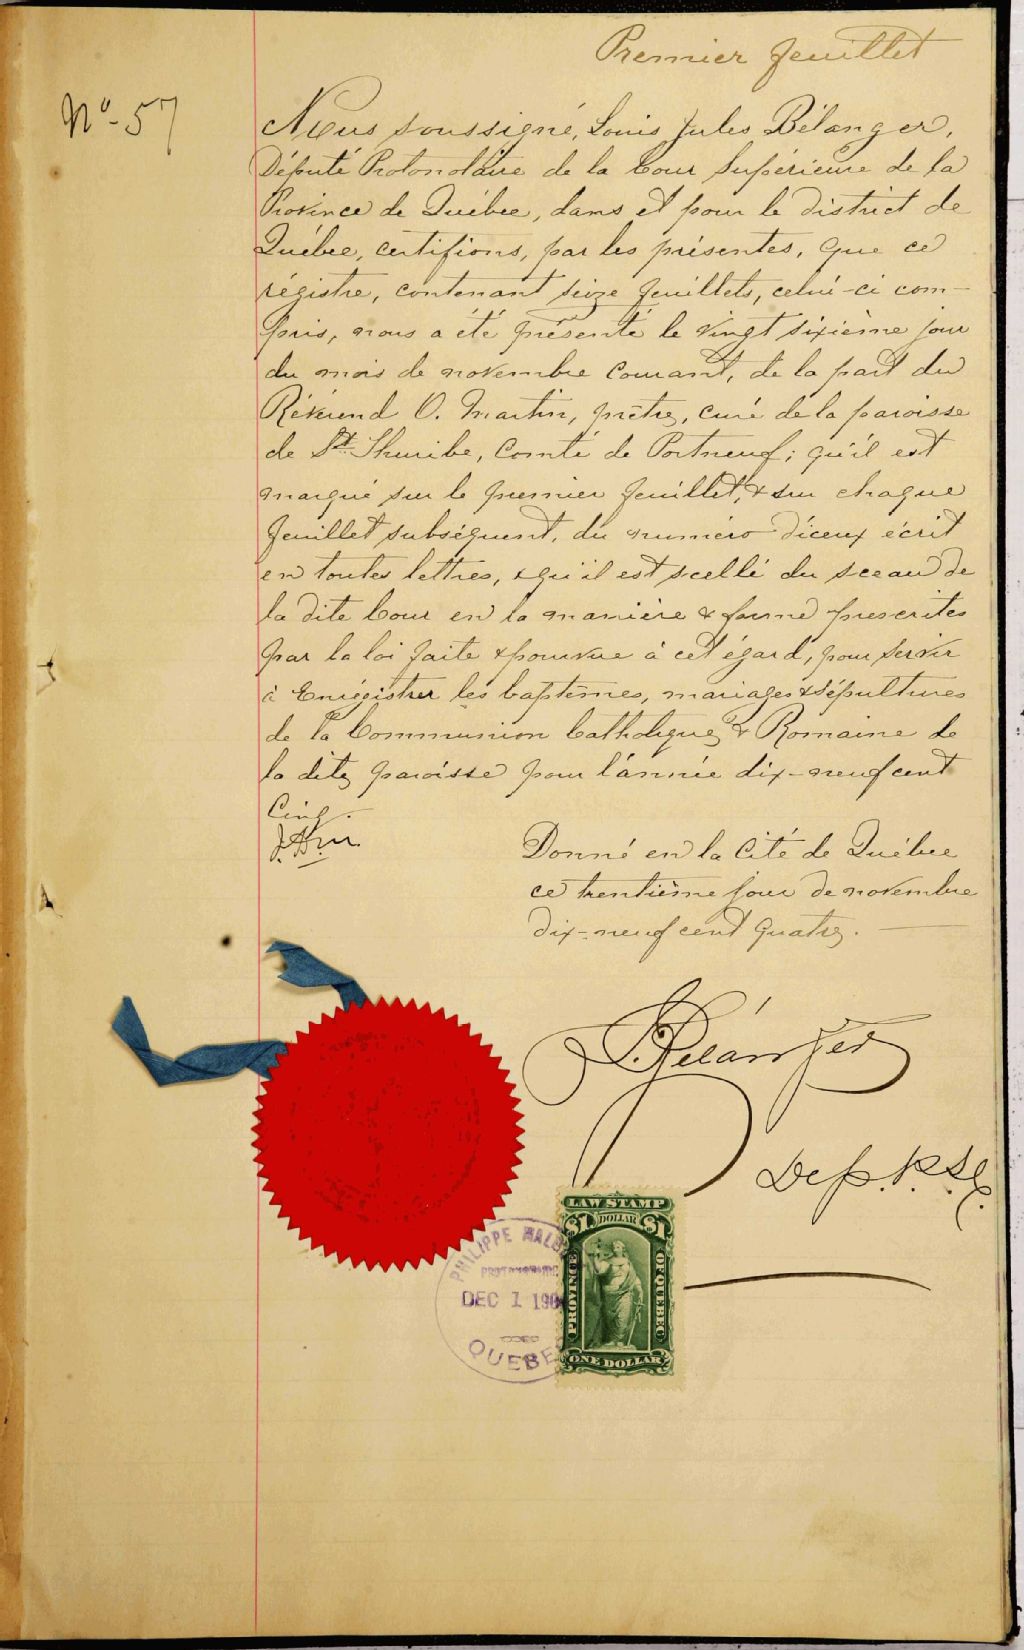 Premier feuillet
No- 57
Nous soussigné, Louis Jules Bélanger,
Député Protonotaire de la Cour Supérieure de la
Province de Québec, dans et pour le district de
Québec, certifions, par les présentes, que ce
régistre, contenant seize feuillets, celui-ci com-
pris, nous a été présenté le vingt sixième jour
du mois de novembre courant, de la part du
Révérend O. Martin, prêtre, curé de la paroisse
de St. Thuribe, Comté de Portneuf; qu'il est
marqué sur le premier feuillet, & sur chaque
feuillet subséquent, du numéro d'iceux écrit
en toutes lettres, & qu'il est scellé du sceau de
la dite Cour en la manière & forme prescrites
par la loi faite & pourvue à cet égard, pour servir
à Enrégistrer les baptêmes, mariages & sépultures
de la Communion Catholique & Romaine de
la dite paroisse pour l'année dix-neuf cent
Cinq.
Donné en la Cité de Québec
ce trentième jour de novembre
dix-neuf cent quatre.
Bélanger
Dep. P.S.C.
LAW STAMP
$1 DOLLAR $1
PROVINCE OF QUEBEC
ONE DOLLAR
PHILIPPE
DEC 1
QUEBE